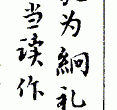 为絅礼
当读作